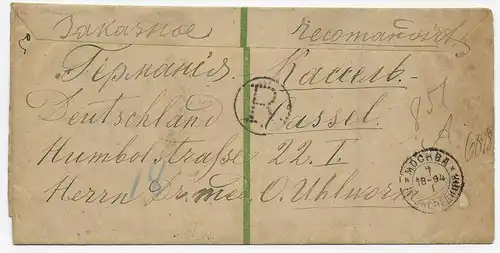 Заказное Recommandirt.
Германія. Кассель.
Deutschland Cassel.
Humbolstrasse 22. I.
Herrn Dr. med. O. Uhlworm
R
18
851
A
МОСКВА
7
18-94
ЭКСПЕДИЦІЯ